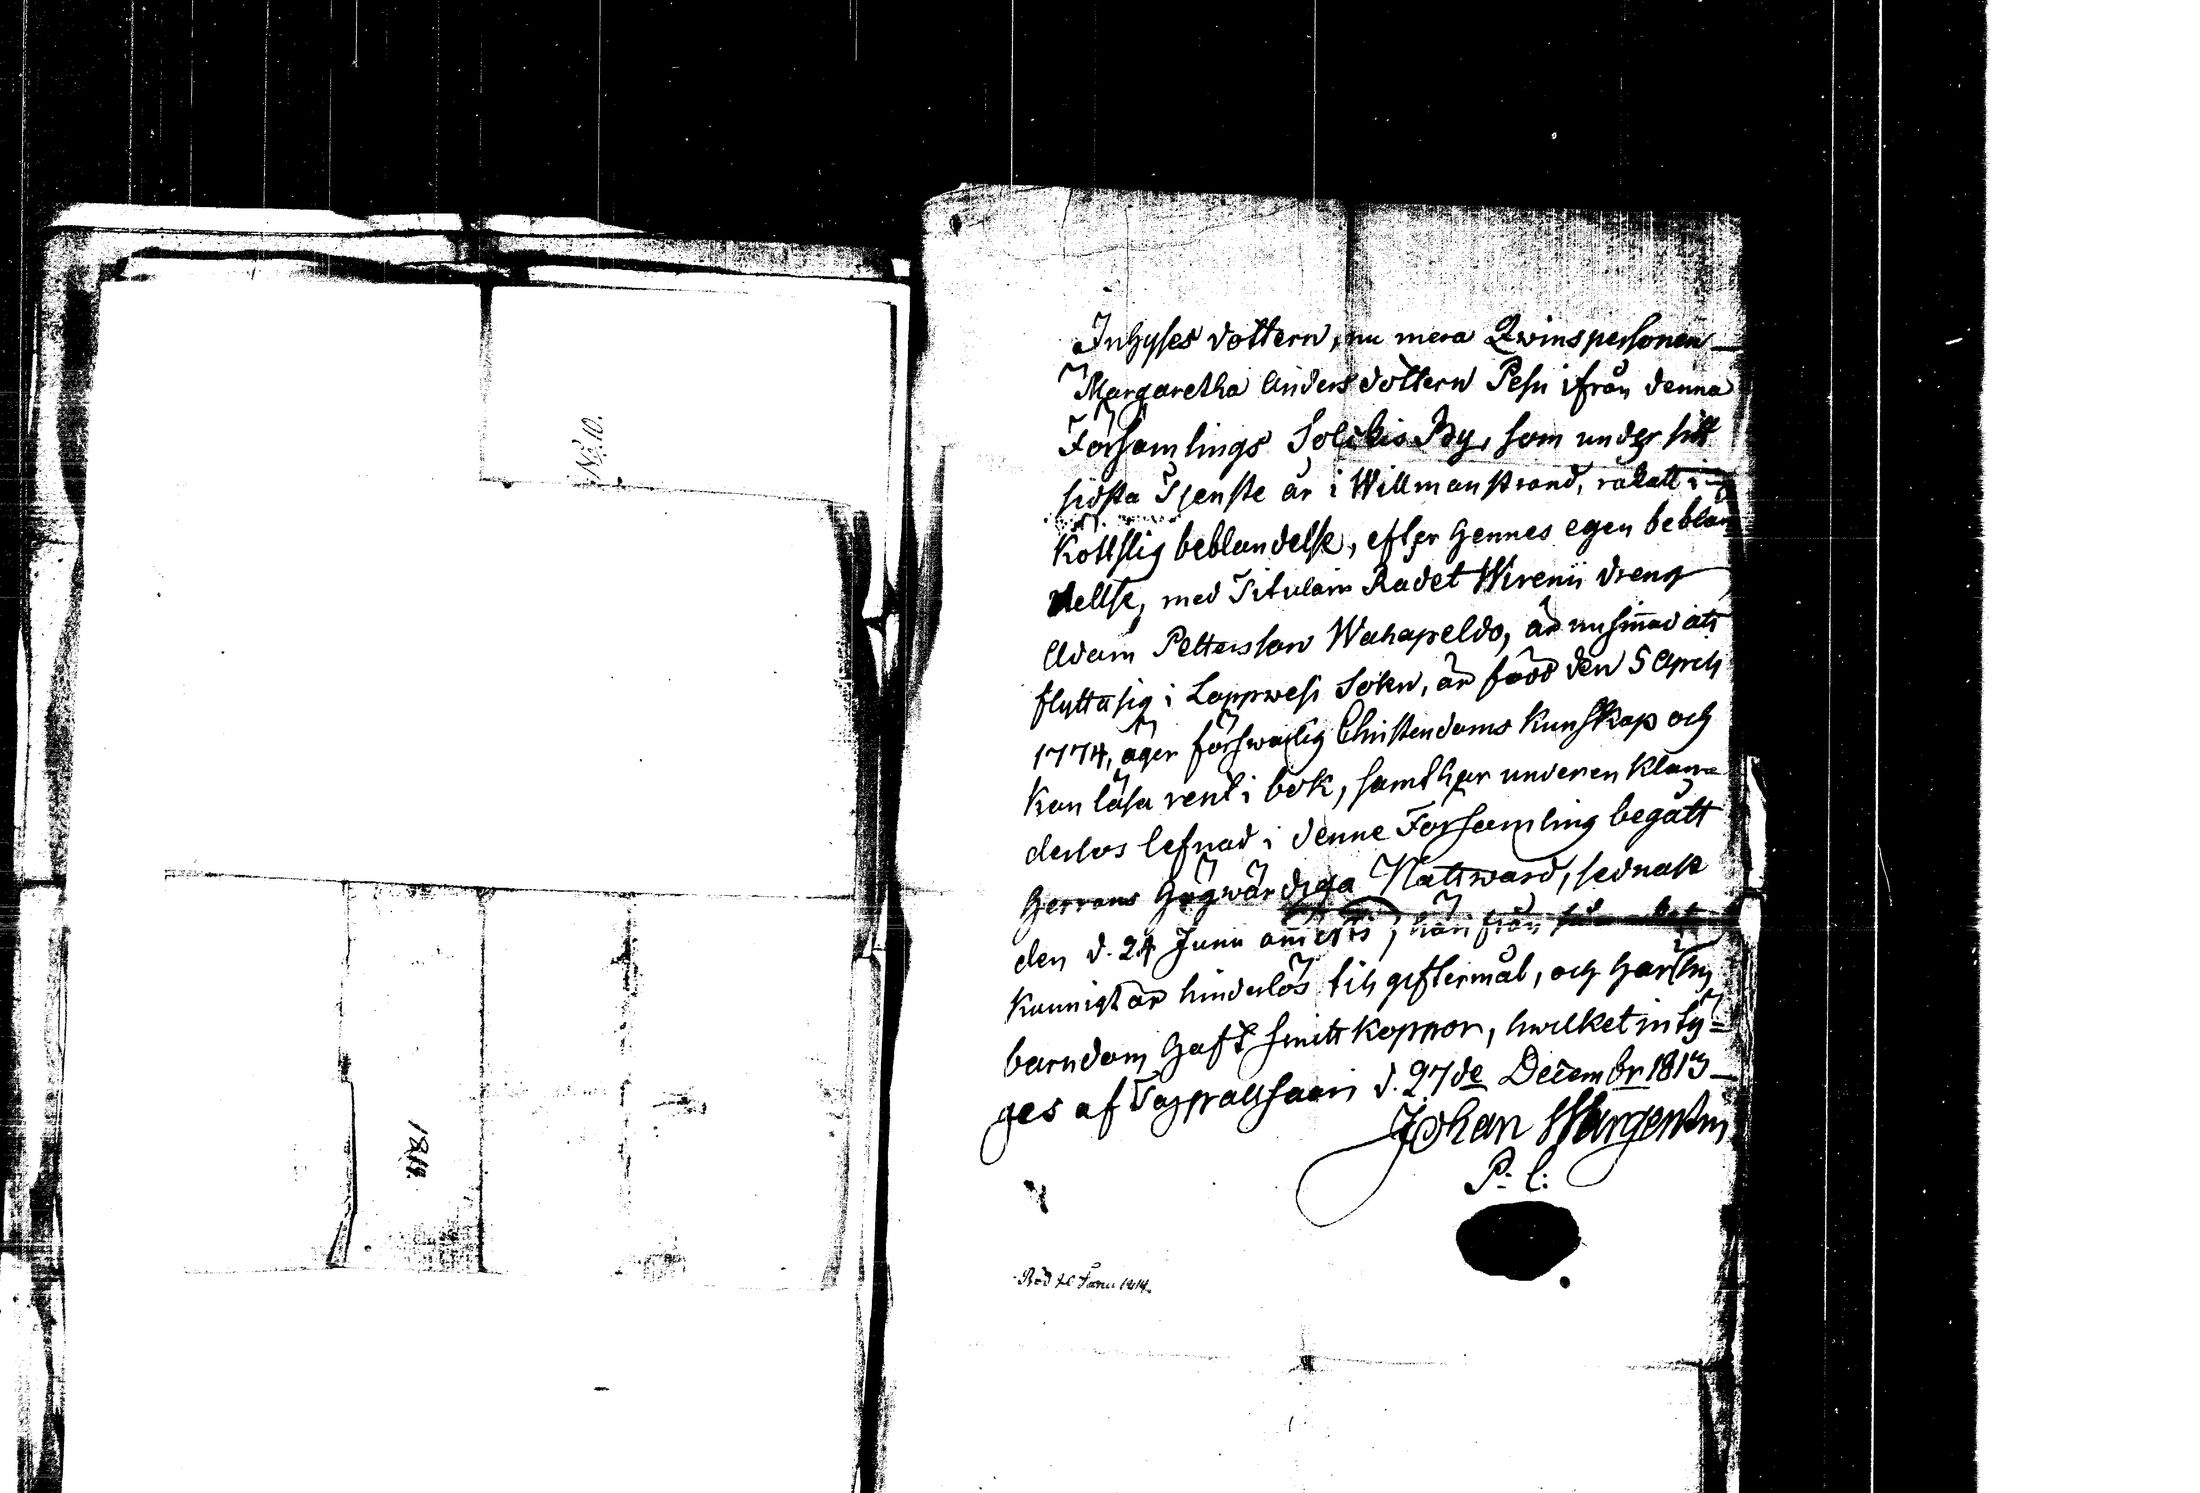 No. 10.
1814.
Inhyses dottern, nu mera Qwinspersonen
Margaretha Anders dottern Pesu ifrån denna
Församlings Solckis By, som under sitt
sidsta Tjenste år i Willmanstrand, råkatt i
Kottslig beblandelse, efter hennes egen beblan
dellse, med Titulair Radet Wirenii dreng
Adam Pettersson Wahapeldo, är nu sinnad att
flytta sig i Lappwesi Sokn, är född den 5 April
1774, äger förswarlig Christendoms Kunskap och
Kan läsa rent i bok, samt har under en klan
derlös lefnad i denne Församling begått
Herrans Högwärdiga Nattward, sednast
den d. 24 Junii anni , härifrån
Kunnigt är hinderlös till giftermål, och har i sin
barndom haft Smittkoppor, hwilket inty=
ges af Taippallsaari d. 27de Decembr 1813
Johan Wargentin
P. l:
Janu 1814.